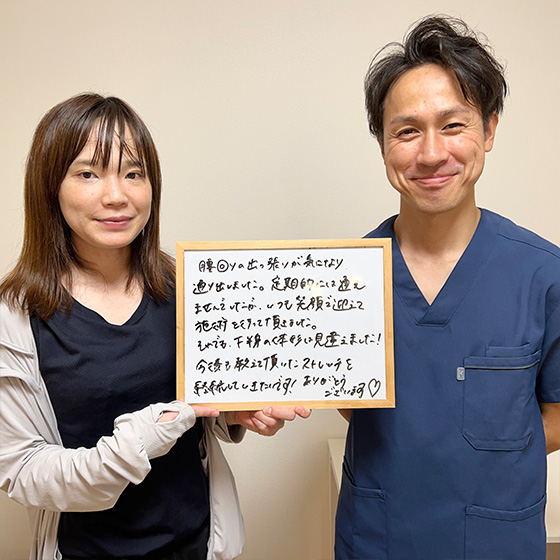 腰回りの出っ張りが気になり
通い出しました。定期的には通え
ませんでしたが、いつも笑顔で迎えて
施術を行って頂きました。
それでも、下半身の体形は見違えました！
今後も教えて頂いたストレッチを
継続していきたいです！ ありがとう
ございます♡